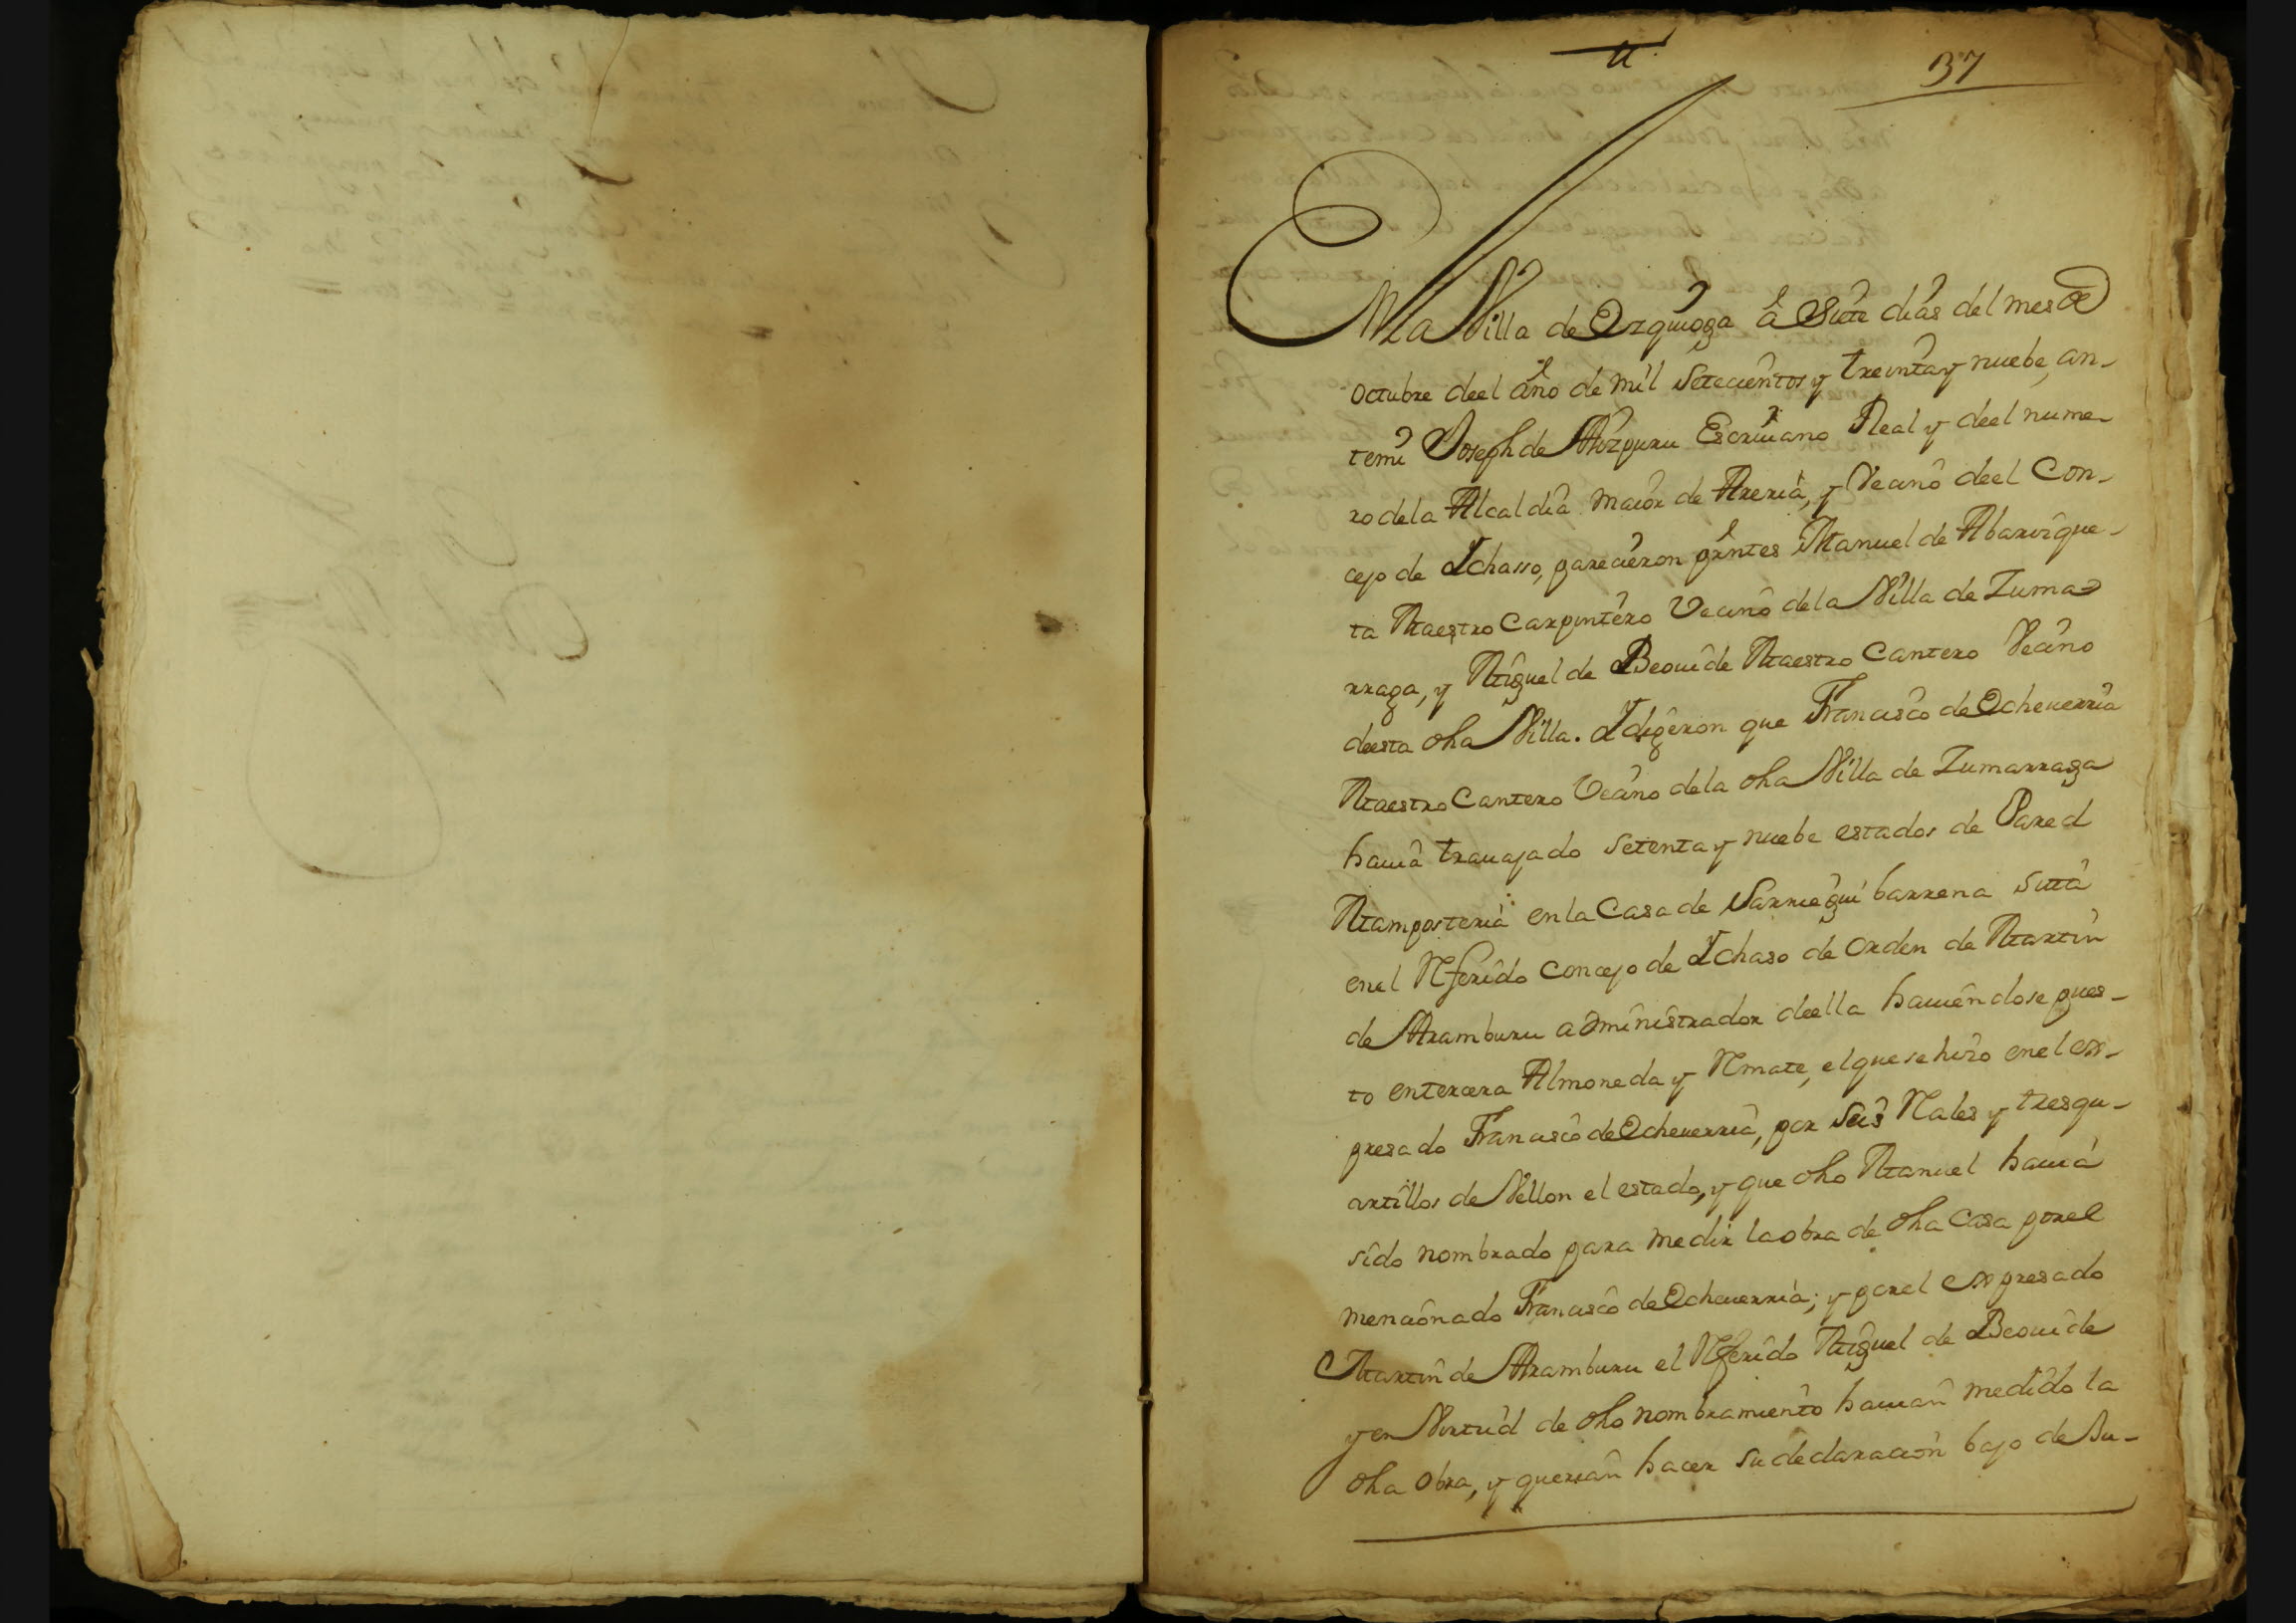 37
En la Villa de Ezquioga â Siete dias del mes de
octubre deel año de mil Setecientos y treinta y nuebe, an-
temi Joseph de Aizpuru Escriuano Real y deel nume-
ro dela Alcaldia maior de Areria, y Vecino deel Con-
cejo de Ychasso, parecieron presntes Manuel de Abarizque-
ta Maestro Carpintero Vecino dela Villa de Zuma=
rraga, y Miguel de Beouide Maestro Cantero Vecino
deesta dha Villa. Y digeron que Francisco de Echeuerria
Maestro Cantero Vecino dela dha Villa de Zumarraga
hauia trauajado Setenta y nuebe estados de Pared
Mamposteria en la Casa de Sarriegui barrena sitta
en el Referido Concejo de Ychaso de orden de Martin
de Aramburu administrador deella hauiendose pues-
to entercera Almoneda y Remate, el que se hizo en el ex-
presado Francisco de Echeuerria, por Seis Reales y tres qu-
artillos de Vellon el estado, y que dho Manuel hauia
sido nombrado para medir la obra de dha Casa por el
mencionado Francisco de Echeuerria; y por el expresado
Martin de Aramburu el Referido Miguel de Beouide
y en Virtud de dho nombramiento hauian medido la
dha obra, y querian hacer su declaracion bajo de Ju-